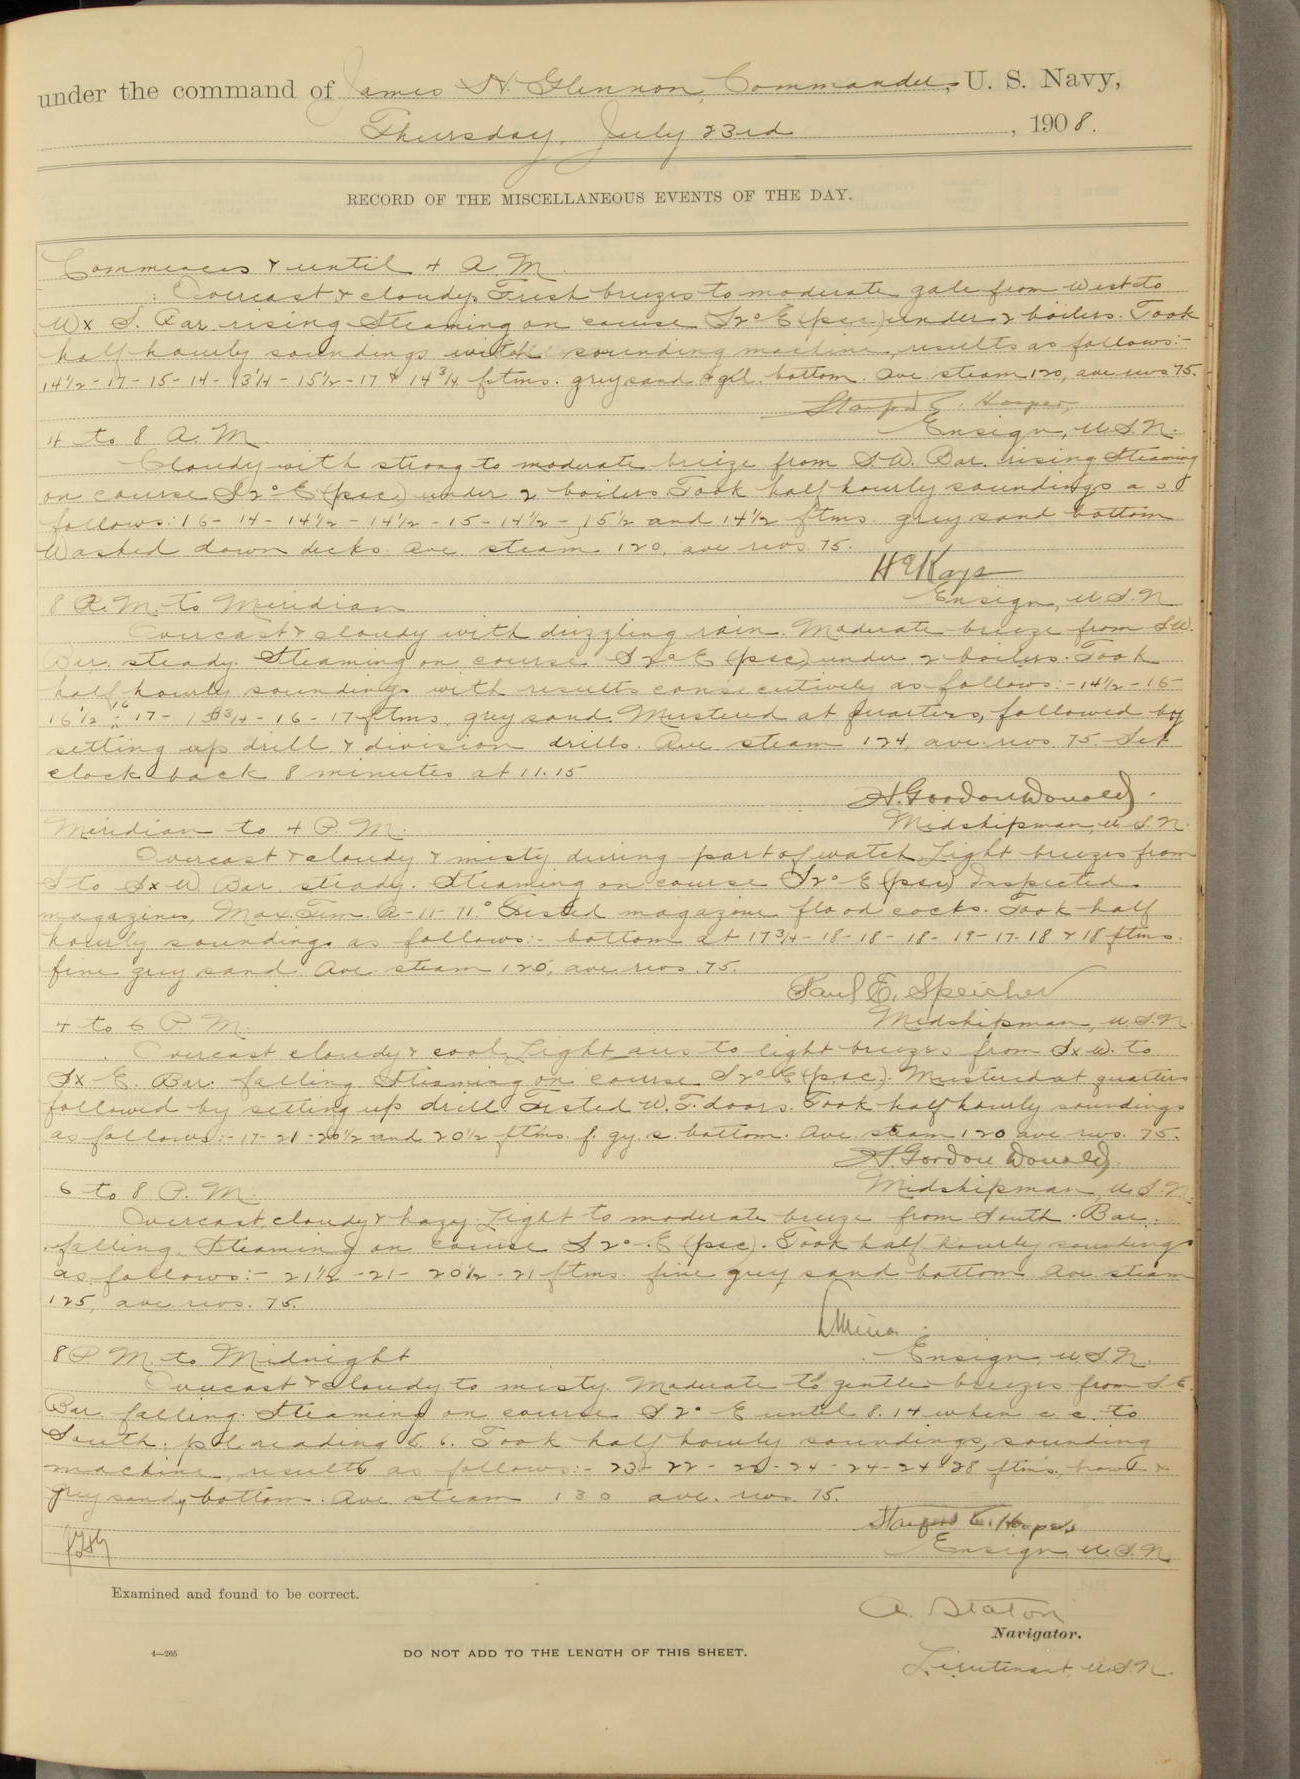 under the command of James H. Glennon, Commander, U. S. Navy,
Thursday, July 23rd, 1908.
RECORD OF THE MISCELLANEOUS EVENTS OF THE DAY.
Commences & until 4 A. M.
Overcast & cloudy. Fresh breezes to moderate gale from West to
W x S. Bar. rising Steaming on course S2°E (psc) under 2 boilers. Took
half hourly soundings with sounding machine, results as follows:-
14½ - 17 - 15 - 14 - 13¼ - 15½ - 17 & 14¾ ftms. grey sand & gl. bottom. Ave. steam 120, ave revs 75.
Stanford C. Hooper,
Ensign, U.S.N.
4 to 8 A. M.
Cloudy with strong to moderate breeze from S.W. Bar. rising Steaming
on course S2°E (psc) under 2 boilers Took half hourly soundings as
follows: 16 - 14 - 14½ - 14½ - 15 - 14½ - 15½ and 14½ ftms. grey sand bottom
Washed down decks. Ave. steam 120, ave revs 75.
H E Kays
Ensign, U.S.N
8 A. M. to Meridian
Overcast & cloudy with drizzling rain. Moderate breeze from SW.
Bar. steady. Steaming on course S2°E (psc) under 2 boilers. Took
half hourly soundings with results consecutively as follows:- 14½ - 15 -
16½ - 16 - 17 - 16¾ - 16 - 17 ftms. grey sand. Mustered at quarters, followed by
setting up drill & division drills. Ave steam 124, ave. revs 75. Set
clock back 8 minutes at 11.15
H. Gordon Donald
Midshipman, U.S.N.
Meridian to 4 P. M.
Overcast & cloudy & misty during part of watch Light breezes from
S to S x W. Bar. steady. Steaming on course S2°E (psc) Inspected
magazines, Max. Tem. A-11-71.° Tested magazine flood cocks. Took half
hourly soundings as follows:- bottom at 17¾ - 18 - 18 - 18 - 19 - 17 - 18 & 18 ftms.
fine grey sand. Ave. steam 120, ave revs. 75.
Paul E. Speicher
Midshipman, U.S.N
4 to 6 P M.
Overcast cloudy & cool. Light airs to light breezes from S x W. to
S x E. Bar. falling Steaming on course S2°E (psc). Mustered at quarters
followed by setting up drill. Tested W. T. doors. Took half hourly soundings
as follows:- 17 - 21 - 20½ and 20½ ftms. f. gy. s. bottom. Ave. steam 120 ave revs. 75.
H. Gordon Donald
Midshipman, U.S.N.
6 to 8 P. M.
Overcast, cloudy & hazy. Light to moderate breeze from South. Bar.
falling. Steaming on course S2°E (psc). Took half hourly soundings
as follows:- 21½ - 21 - 20½ - 21 ftms. fine grey sand bottom. Ave steam
125, ave revs. 75.
Ensign, U.S.N.
8 P M. to Midnight
Overcast & cloudy to misty. Moderate to gentle breezes from S. E.
Bar. falling. Steaming on course S2°E until 8.14 when c. c. to
South. p.l. reading 6. 6. Took half hourly soundings, sounding
machine, results as follows:- 23 - 22 - 22 - 24 - 24 - 24 - 28 ftms. brown &
grey sandy bottom. Ave steam 130 ave. revs. 75.
Stanford C. Hooper
Ensign, U.S.N.
Examined and found to be correct.
A. Staton
Navigator.
4—265
DO NOT ADD TO THE LENGTH OF THIS SHEET.
Lieutenant, U.S.N.